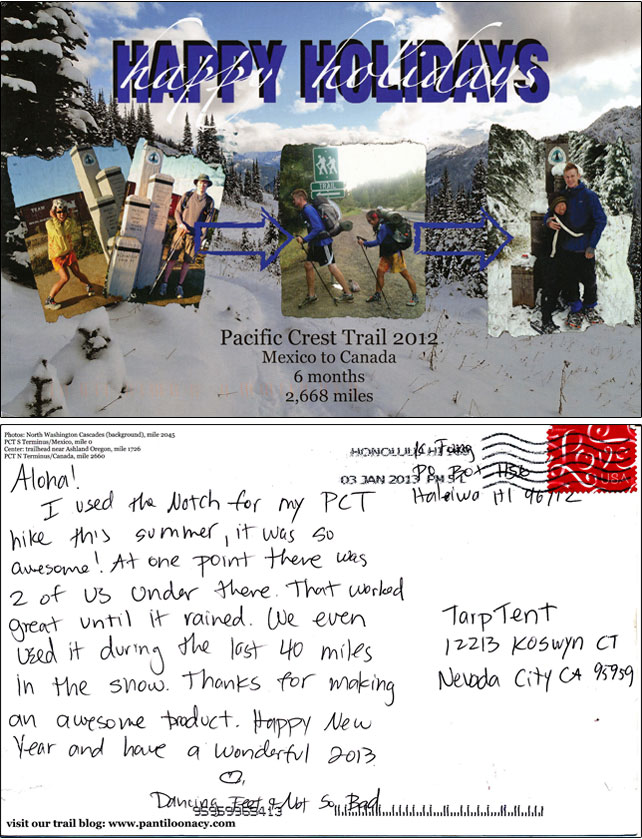 happy holidays
HAPPY HOLIDAYS
TRAIL
Pacific Crest Trail 2012
Mexico to Canada
6 months
2,668 miles
Photos: North Washington Cascades (background), mile 2045
PCT S Terminus/Mexico, mile 0
Center: trailhead near Ashland Oregon, mile 1726
PCT N Terminus/Canada, mile 2660
HONOLULU HI
03 JAN 2013 PM
PO Box
Haleiwa HI 96712
Love
USA
Aloha!
I used the Notch for my PCT
hike this summer, it was so
awesome! At one point there was
2 of us under there. That worked
great until it rained. We even
used it during the last 40 miles
in the snow. Thanks for making
an awesome product. Happy New
Year and have a wonderful 2013
♡,
Dancing Feet & Not So Bad
TarpTent
12213 Koswyn CT
Nevada City CA 95959
95959965413
visit our trail blog: www.pantiloonacy.com